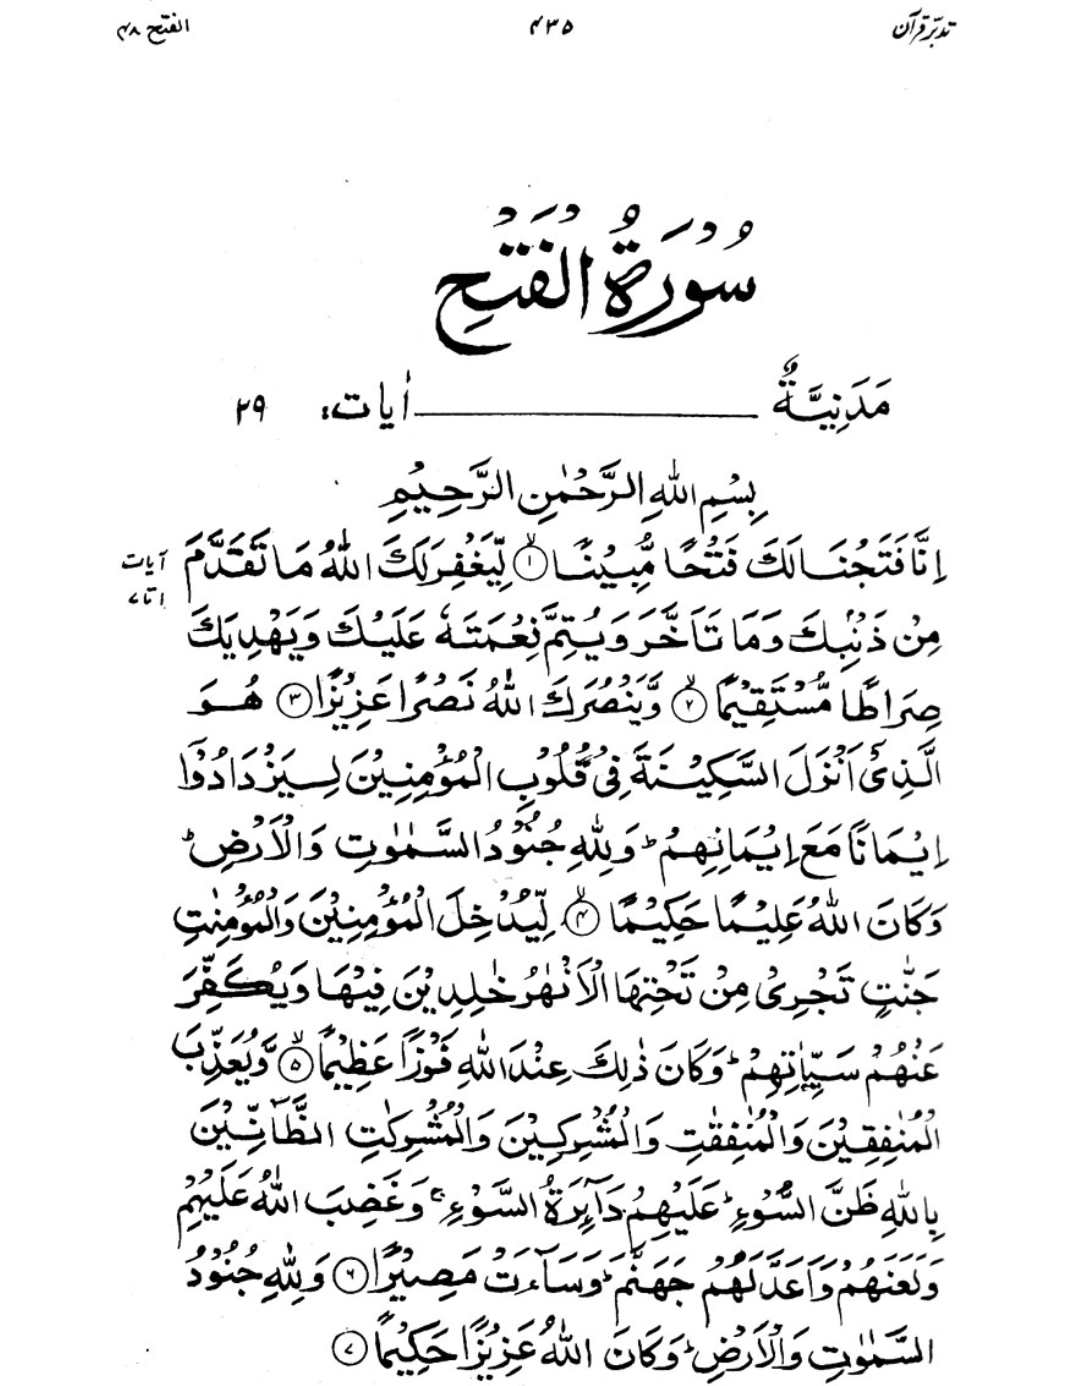 تدبّر قرآن ۴۳۵ الفتح ۴۸
سُوْرَةُ الْفَتْحِ
مَدَنِيَّةٌ ــــــــــ اٰيات: ۲۹
بِسْمِ اللهِ الرَّحْمٰنِ الرَّحِيْمِ
اِنَّا فَتَحْنَا لَكَ فَتْحًا مُّبِيْنًا ۙ﴿۱﴾ لِّيَغْفِرَ لَكَ اللهُ مَا تَقَدَّمَ
آیات
۱ تا ۷
مِنْ ذَنْۢبِكَ وَمَا تَاَخَّرَ وَيُتِمَّ نِعْمَتَهٗ عَلَيْكَ وَيَهْدِيَكَ
صِرَاطًا مُّسْتَقِيْمًا ۙ﴿۲﴾ وَّيَنْصُرَكَ اللهُ نَصْرًا عَزِيْزًا ﴿۳﴾ هُوَ
الَّذِيْٓ اَنْزَلَ السَّكِيْنَةَ فِيْ قُلُوْبِ الْمُؤْمِنِيْنَ لِيَزْدَادُوْٓا
اِيْمَانًا مَّعَ اِيْمَانِهِمْ ؕ وَلِلّٰهِ جُنُوْدُ السَّمٰوٰتِ وَالْاَرْضِ ؕ
وَكَانَ اللهُ عَلِيْمًا حَكِيْمًا ۙ﴿۴﴾ لِّيُدْخِلَ الْمُؤْمِنِيْنَ وَالْمُؤْمِنٰتِ
جَنّٰتٍ تَجْرِيْ مِنْ تَحْتِهَا الْاَنْهٰرُ خٰلِدِيْنَ فِيْهَا وَيُكَفِّرَ
عَنْهُمْ سَيِّاٰتِهِمْ ؕ وَكَانَ ذٰلِكَ عِنْدَ اللهِ فَوْزًا عَظِيْمًا ۙ﴿۵﴾ وَّيُعَذِّبَ
الْمُنٰفِقِيْنَ وَالْمُنٰفِقٰتِ وَالْمُشْرِكِيْنَ وَالْمُشْرِكٰتِ الظَّآنِّيْنَ
بِاللهِ ظَنَّ السَّوْءِ ؕ عَلَيْهِمْ دَآىِٕرَةُ السَّوْءِ ۚ وَغَضِبَ اللهُ عَلَيْهِمْ
وَلَعَنَهُمْ وَاَعَدَّ لَهُمْ جَهَنَّمَ ؕ وَسَآءَتْ مَصِيْرًا ﴿۶﴾ وَلِلّٰهِ جُنُوْدُ
السَّمٰوٰتِ وَالْاَرْضِ ؕ وَكَانَ اللهُ عَزِيْزًا حَكِيْمًا ﴿۷﴾